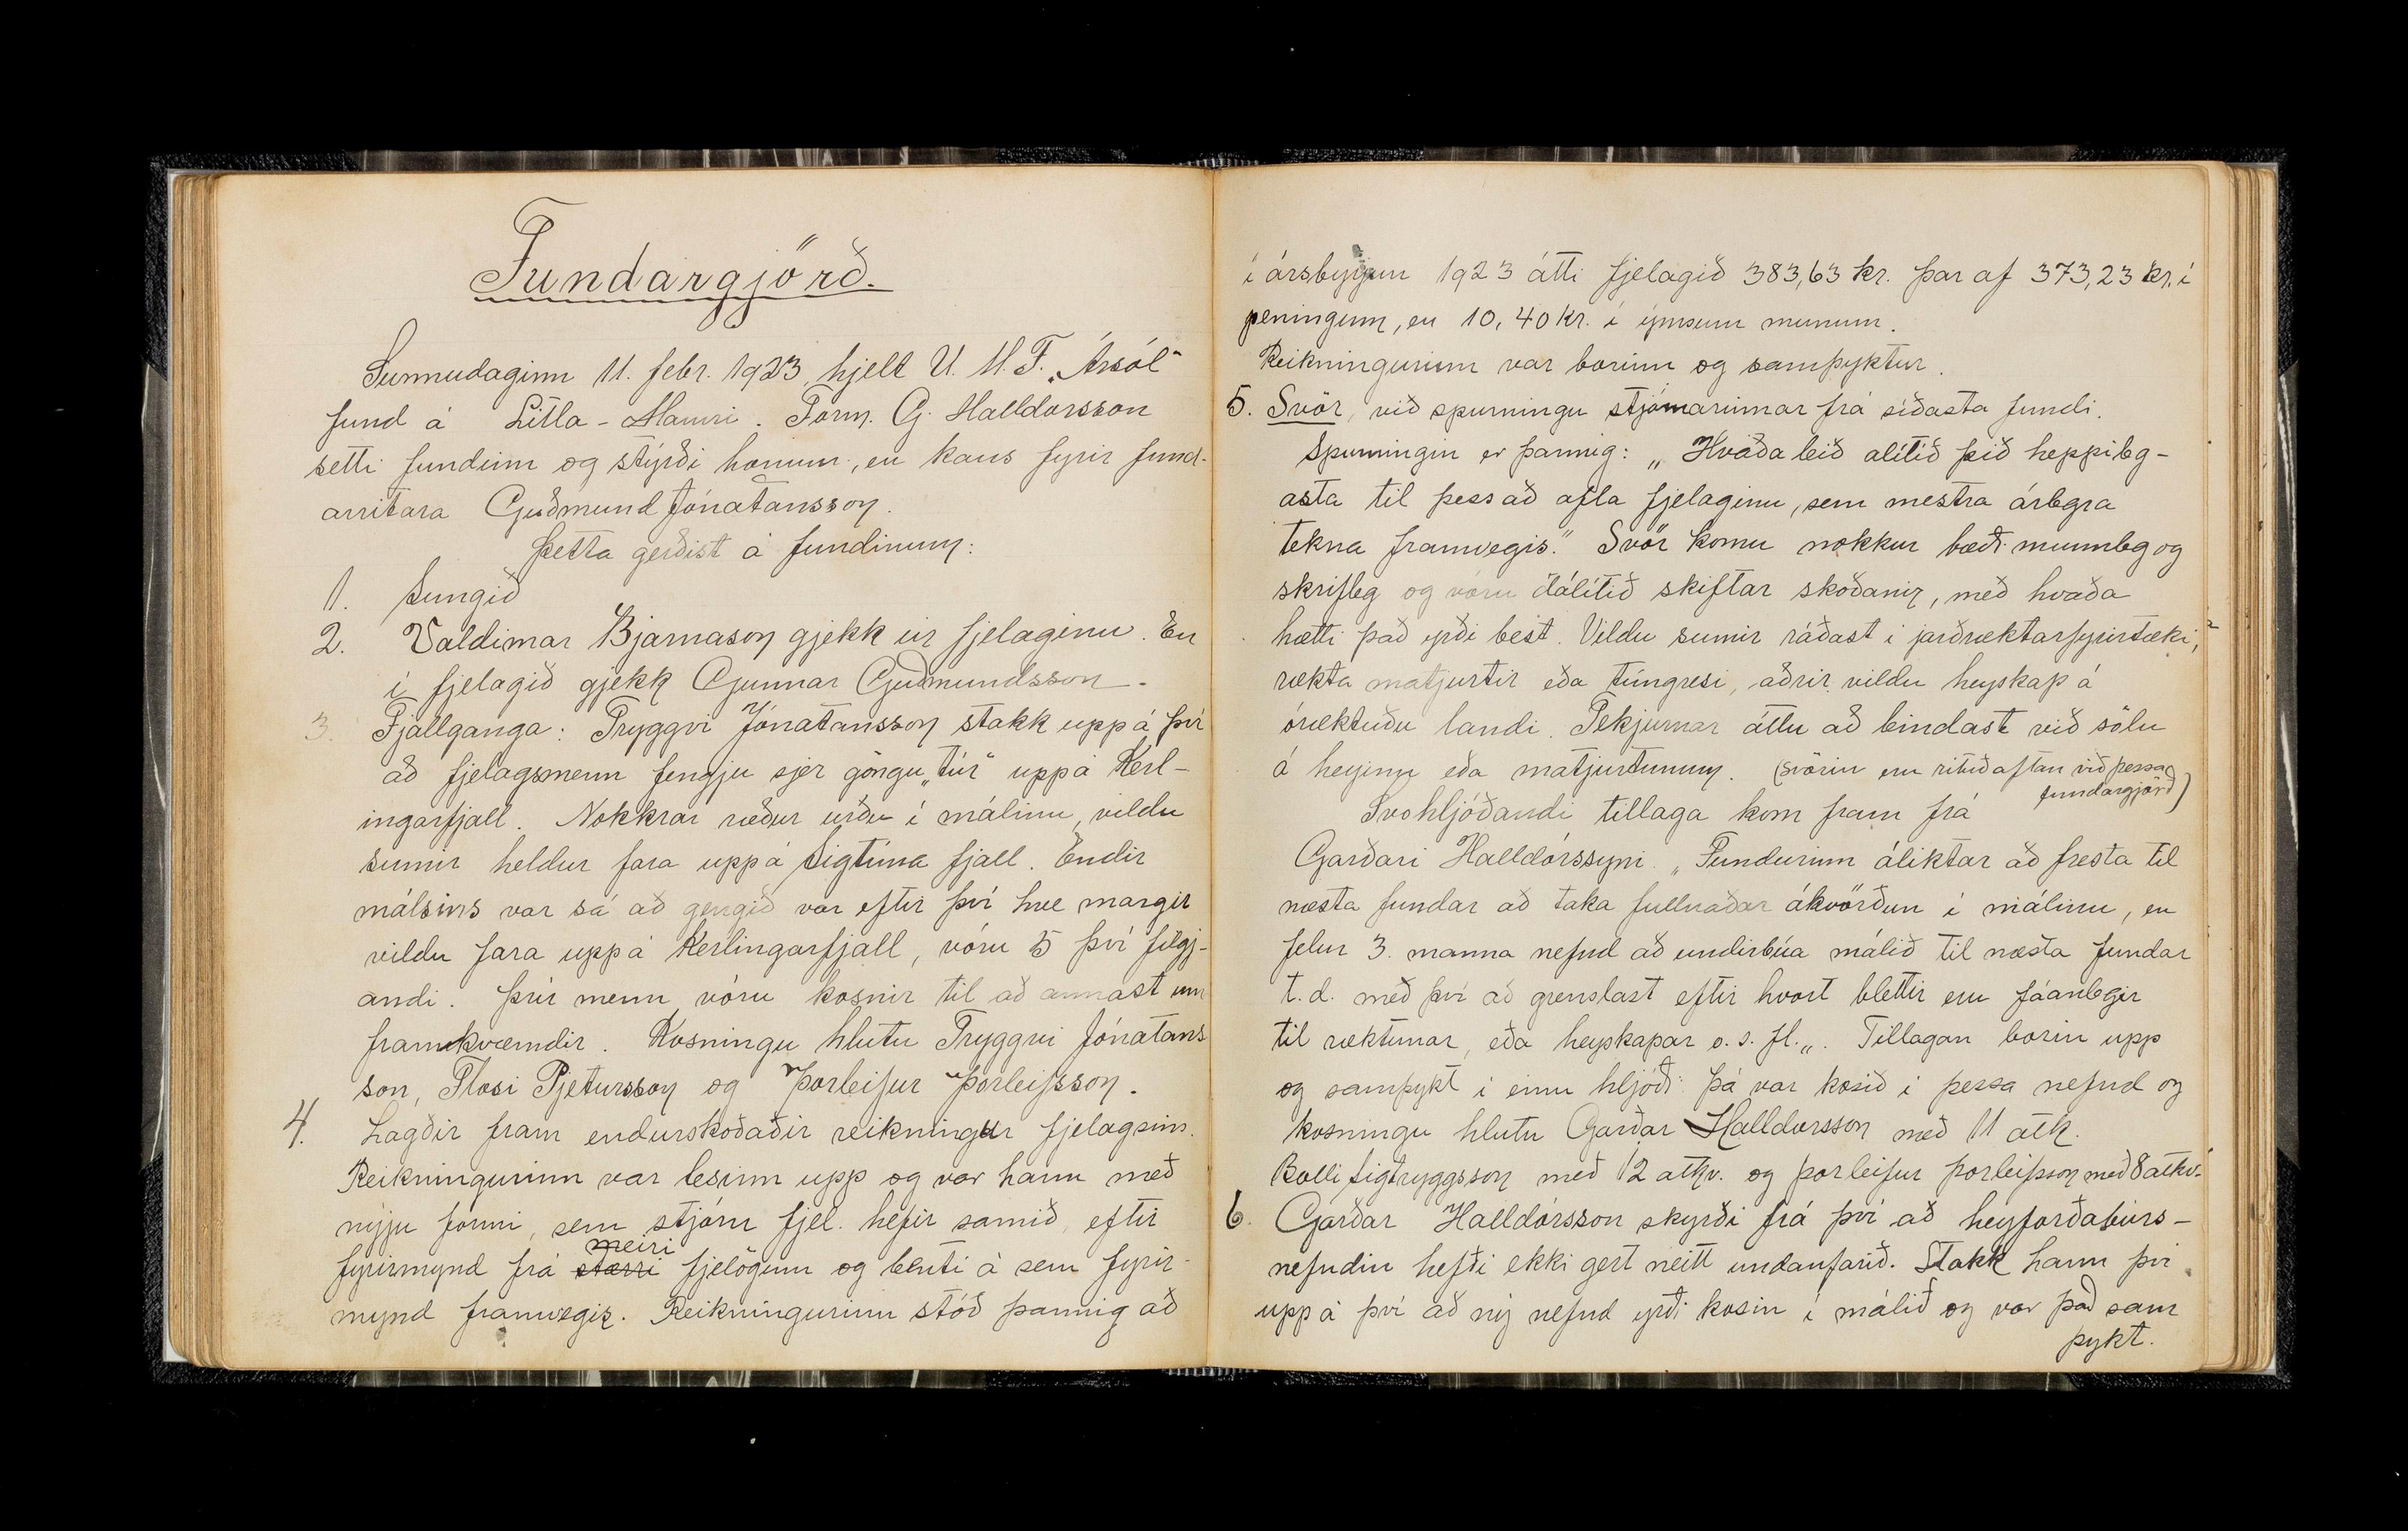 Fundargjörð.
Sunnudaginn 11. febr. 1923, hjelt U. M. F. „Ársól"
fund á Litla-Hamri. Form. G. Halldorsson
setti fundinn og stýrði honum, en kaus fyrir fund-
arritara Guðmund Jónatansson.
Þetta gerðist á fundinum:
1. Sungið
2. Valdimar Bjarnason gjekk úr fjelaginu. En
í fjelagið gjekk Gunnar Guðmundsson.
3. Fjallganga: Tryggvi Jónatansson stakk uppá því
að fjelagsmenn fengju sjer göngu„túr" uppá Kerl-
ingarfjall. Nokkrar ræður urðu í málinu, vildu
sumir heldur fara uppá Sigtúna fjall. Endir
málsins var sá að gengið var eftir því hve margir
vildu fara uppá Kerlingarfjall, vóru 15 því filgj-
andi. Þrír menn vóru kosnir til að annast um
framkvæmdir. Kosningu hlutu Tryggvi Jónatans
son, Flosi Pjetursson og Þorleifur Þorleifsson.
4. Lagðir fram endurskoðaðir reikningur fjelagsins.
Reikningurinn var lesinn upp og var hann með
nýju formi, sem stjórn fjel. hefir samið, eftir
meiri
fyrirmynd frá stærri fjelögum og benti á sem fyrir-
mynd framvegis. Reikningurinn stóð þannig að
í ársbyrjun 1923 átti fjelagið 383,63 kr. þar af 373,23 kr. í
peningum, en 10,40 kr. í ýmsum munum.
Reikningurinn var borinn og samþyktur.
5. Svör, við spurningu stjórnarinnar frá síðasta fundi.
Spurningin er þannig: „Hvaða leið alítið þið heppileg-
asta til þess að afla fjelaginu, sem mestra árlegra
tekna framvegis." Svör komu nokkur bæði munnleg og
skrifleg og vóru dálítið skiftar skoðanir, með hvaða
hætti það yrði best. Vildu sumir ráðast í jarðræktarfyrirtæki,
rækta matjurtir eða túngresi, aðrir vildu heyskap á
óræktuðu landi. Tekjurnar áttu að bindast við sölu
á heyinu eða matjurtunum. (svörin eru rituð aftan við þessa
fundargjörð)
Svohljóðandi tillaga kom fram frá
Garðari Halldórssyni. „Fundurinn áliktar að fresta til
næsta fundar að taka fullnaðar ákvörðun í málinu, en
felur 3. manna nefnd að undirbúa málið til næsta fundar
t.d. með því að grenslast eftir hvort blettir eru fáanlegir
til ræktunar, eða heyskapar o. s. fl.„. Tillagan borin upp
og samþykt í einu hljóði. Þá var kosið í þessa nefnd og
kosningu hlutu Garðar Halldorsson með 11 atk.
Bolli Sigtryggsson með 12 atkv. og Þorleifur Þorleifsson með 8 atkv.
6. Garðar Halldórsson skyrði frá því að heyforðabúrs-
nefndin hefði ekki gert neitt undanfarið. Stakk hann því
uppá því að ný nefnd yrði kosin í málið og var það sam
þykt.